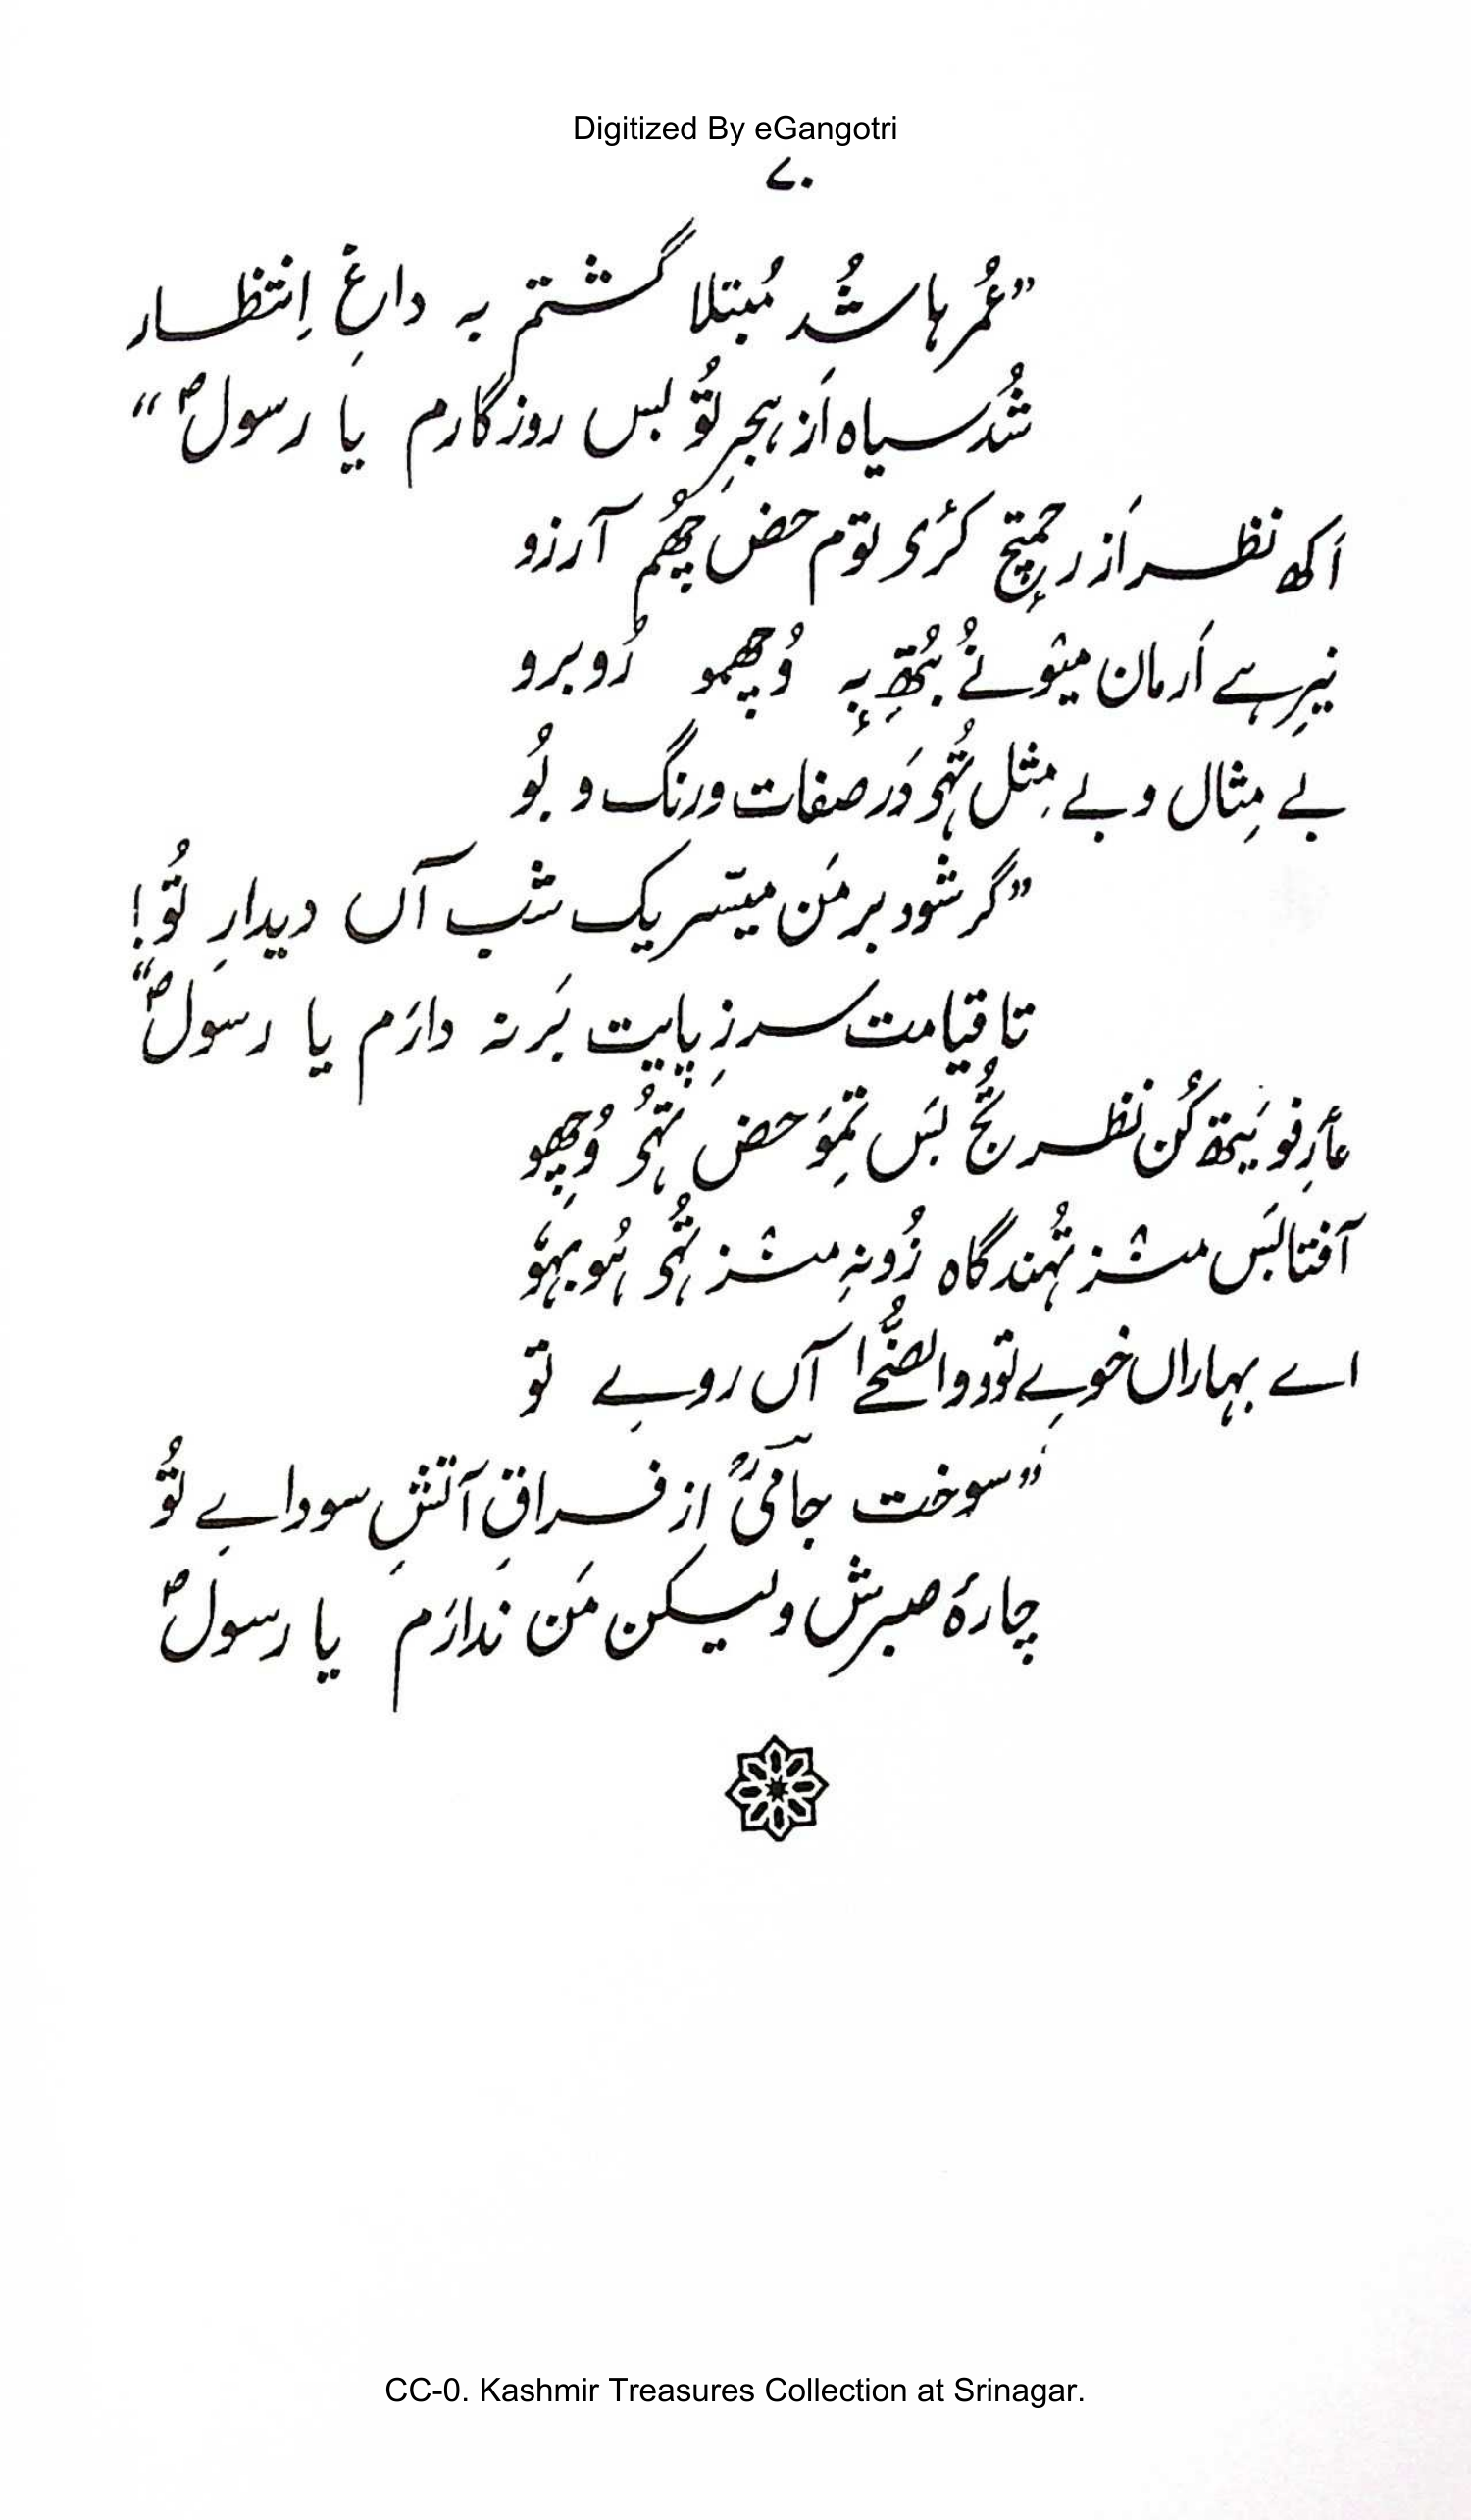 Digitized By eGangotri
۷۰
”عُمر ہا شُد مُبتلا گشتم بہ داغِ اِنتظار
شُد سیاہ اَز ہجرِ تُو بس روزگارم یا رسولؐ“
اَکھ نظر اَز رحمتٕچ کرٔی توم حض چھُم آرزو
نیرِ ہے اَرمان میٚونُے بُتھِ بہٕ وُچھمو رُوبرو
بے مِثال و بے مِثل تُہی دَر صفات و رنگ و بُو
”گر شود بر مَن میسّر یک شب آں دیدارِ تُو!
تا قیامت سر زِ پایت بَر نہ دارَم یا رسوَلؐ“
عأرِفو یَتھ کُن نظر تُج بَس تِمَو حض تُہی وُچھِو
آفتابَس منٛز تُہند گاہ زُونہِ منٛز تُہی ہُو بہوٗ
اے بہاراں خوےِ تو و والضُّحٰے آں روےِ تو
”سوخت جامیؒ از فراقِ آتشِ سوداےِ تُو
چارۂ صبرش ولیکن مَن ندارَم یا رسوَلؐ
CC-0. Kashmir Treasures Collection at Srinagar.